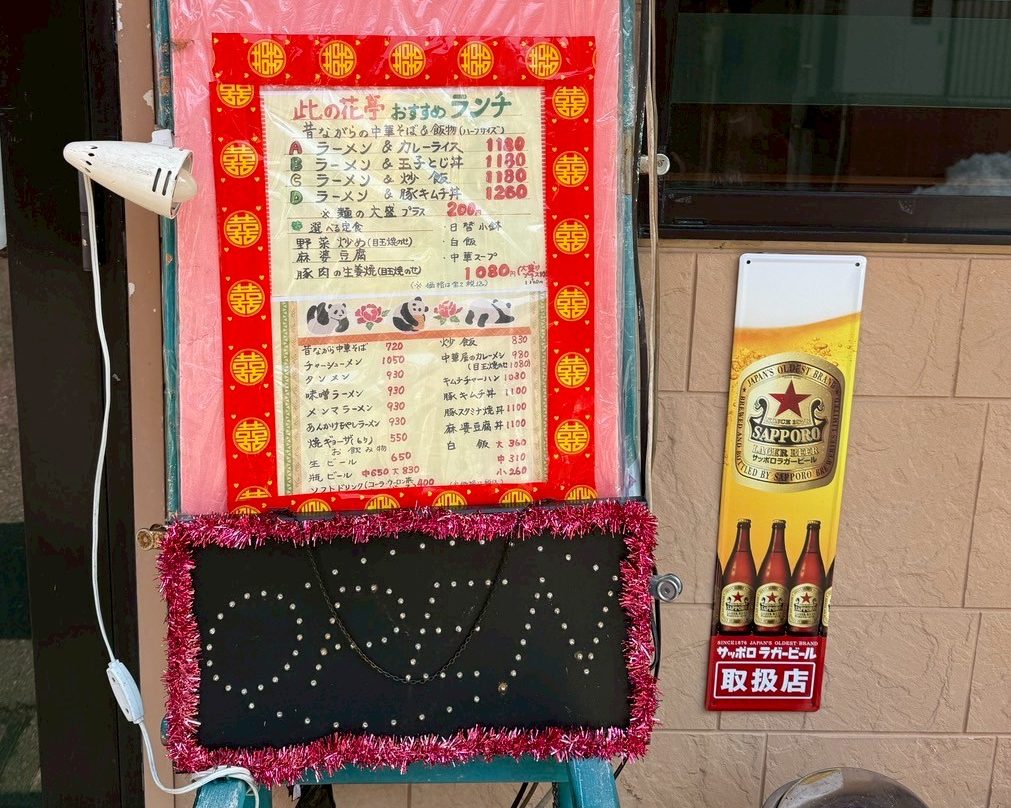 此の花亭 おすすめ ランチ
昔ながらの中華そば&飯物(ハーフサイズ)
A ラーメン & カレーライス 1180
B ラーメン & 玉子とじ丼 1180
C ラーメン & 炒飯 1180
D ラーメン & 豚キムチ丼 1260
※ 麺の大盛 プラス 200円
選べる定食
・日替小鉢
野菜炒め(目玉焼のせ)
・白飯
麻婆豆腐
・中華スープ
豚肉の生姜焼(目玉焼のせ)
1080円
昔ながら中華そば 720
チャーシューメン 1050
タンメン 930
味噌ラーメン 930
メンマラーメン 930
あんかけもやしラーメン 930
焼ギョーザ(6ヶ) 550
お飲み物
生ビール 650
瓶ビール 中650 大830
ソフトドリンク(コーラ・ウーロン茶 400
炒飯 830
中華屋のカレーメン 980
(目玉焼のせ1080)
キムチチャーハン 1030
豚キムチ丼 1100
豚スタミナ焼丼 1100
麻婆豆腐丼 1100
白飯 大360
中310
小260
JAPAN'S OLDEST BRAND
SAPPORO
LAGER BEER
サッポロラガービール
BREWED AND BOTTLED BY SAPPORO
SINCE1876 JAPAN'S OLDEST BRAND
サッポロ ラガービール
取扱店